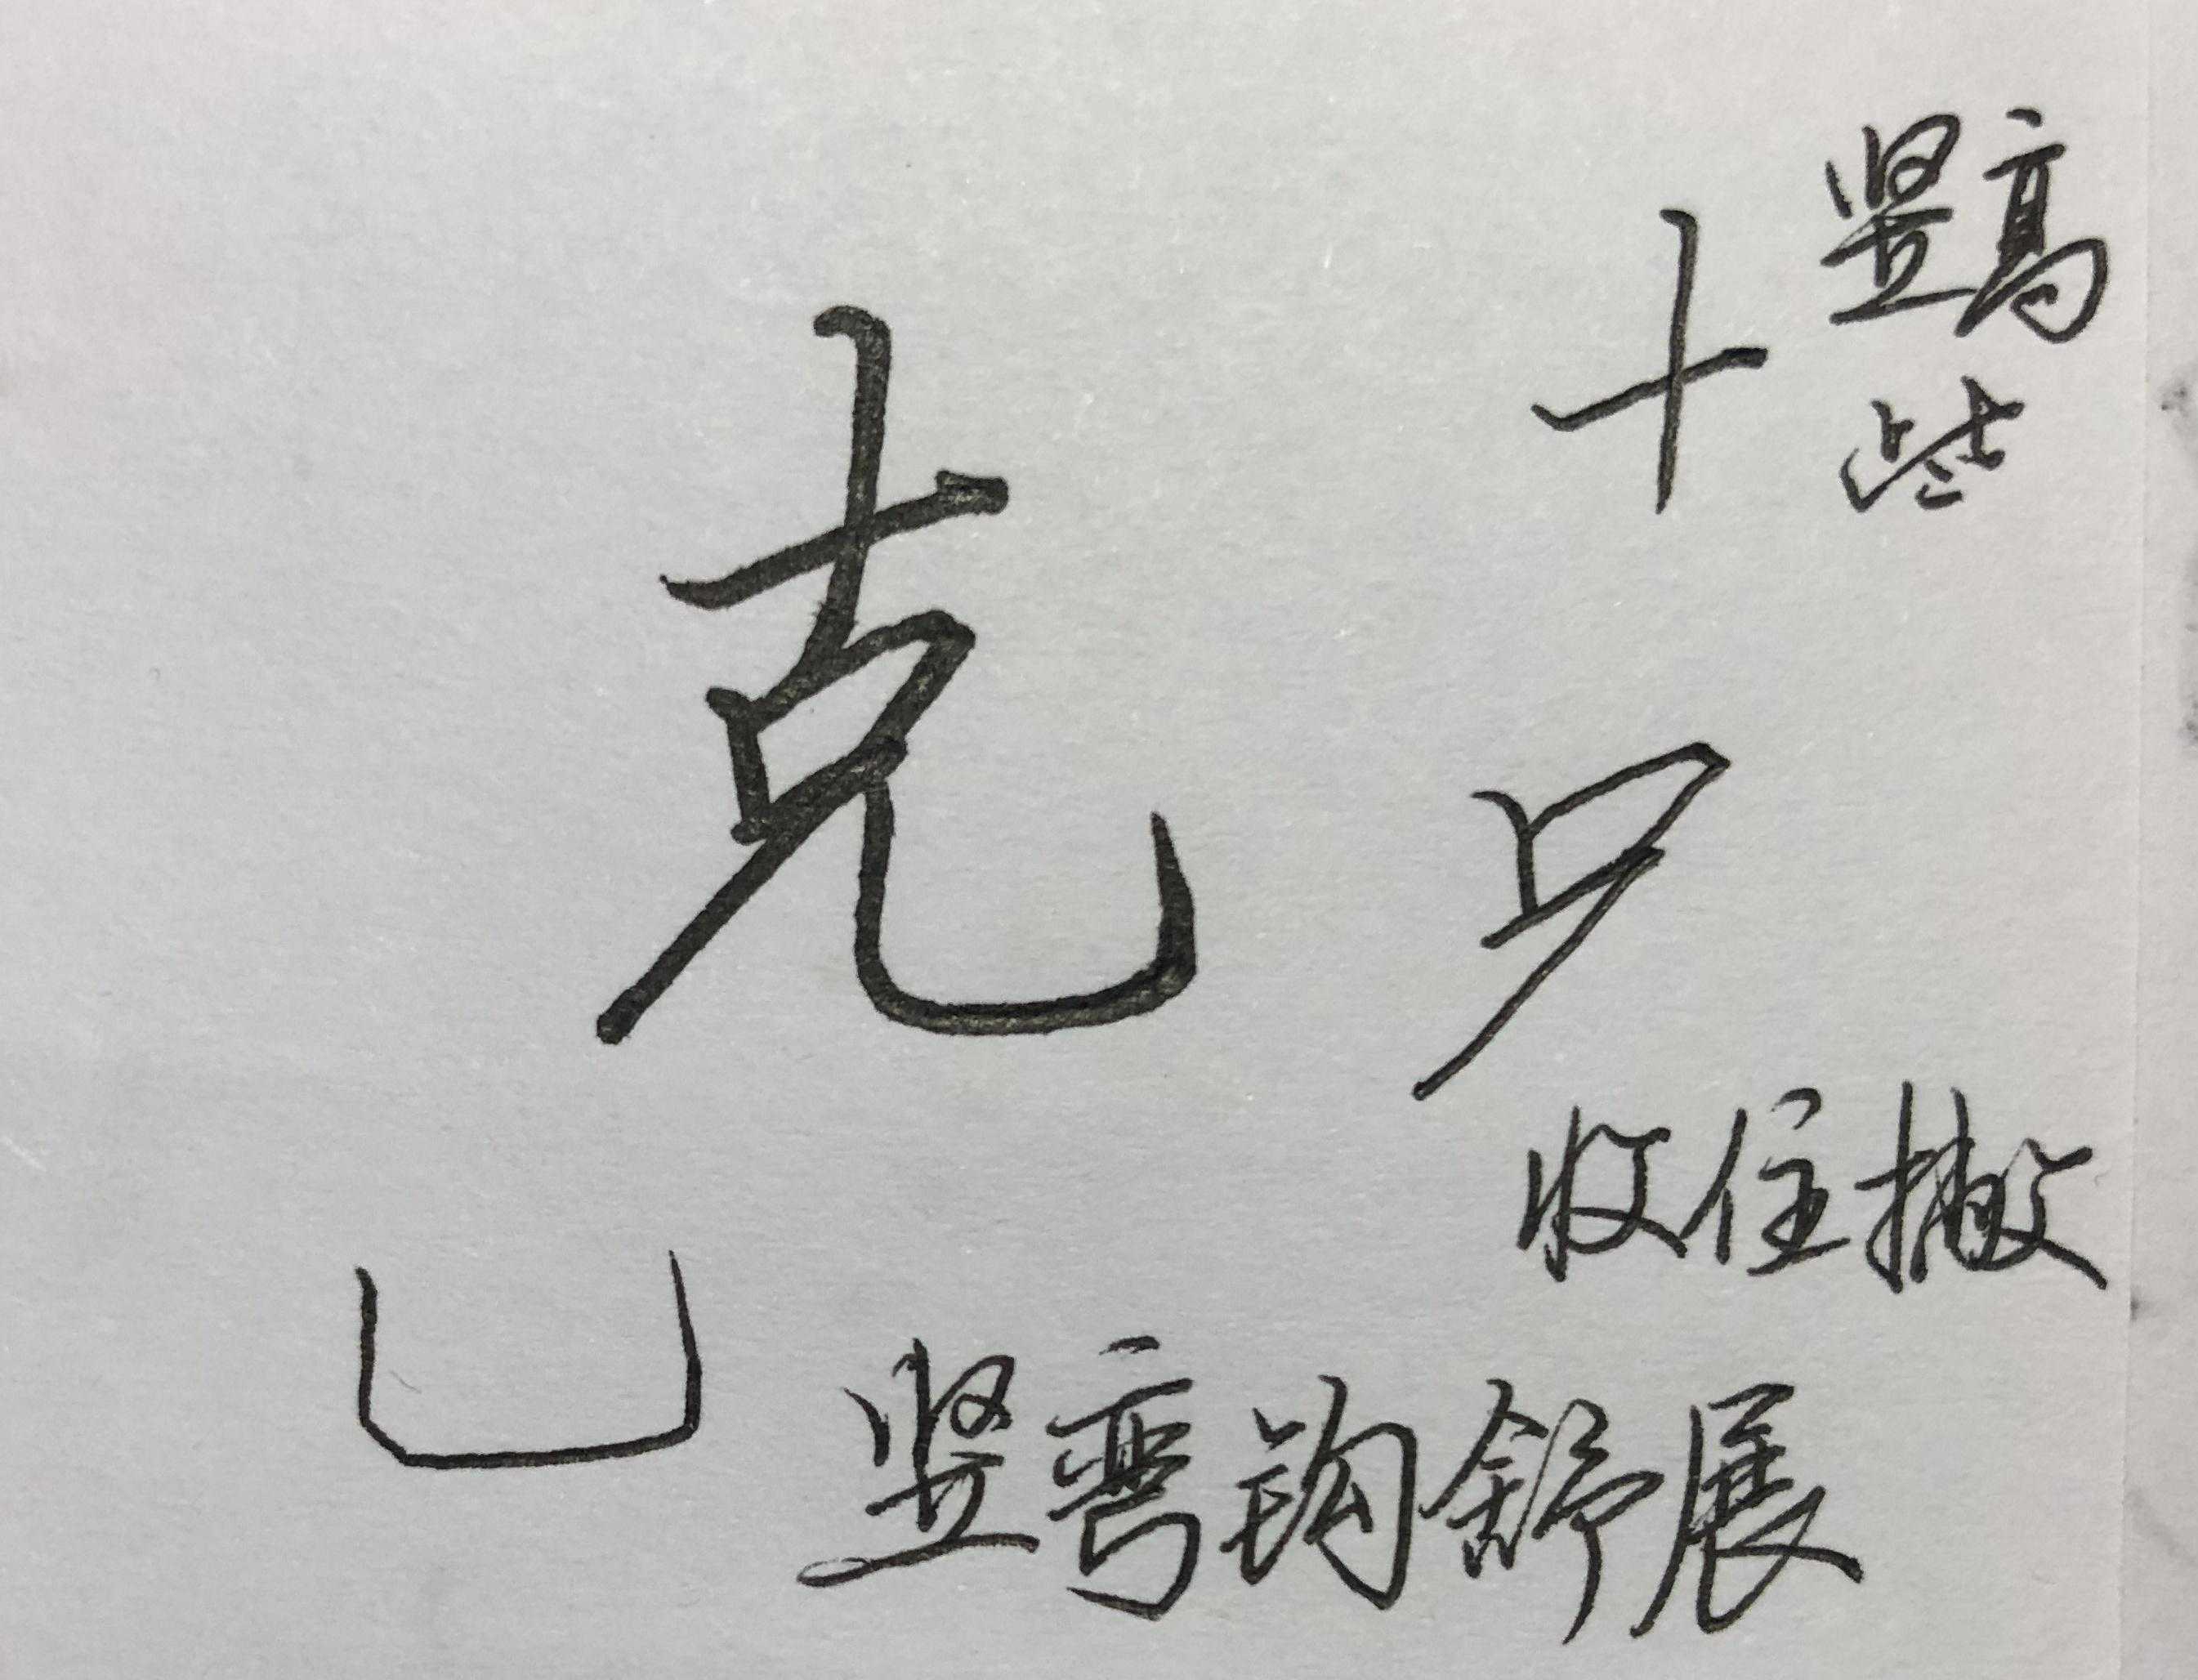 克
十 竖高
些
收住撇
竖弯钩舒展